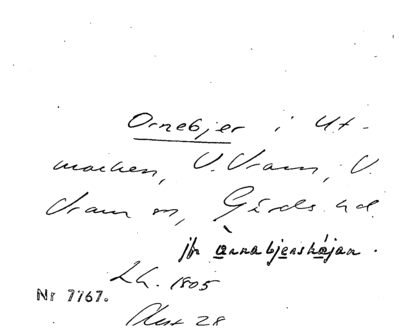 Ornebjer i Ut-
marken, V. Vram, V.
Vram sn, Gärds hd.
jfr ännabjershöjan.
LH. 1805
Nr 7767.
28